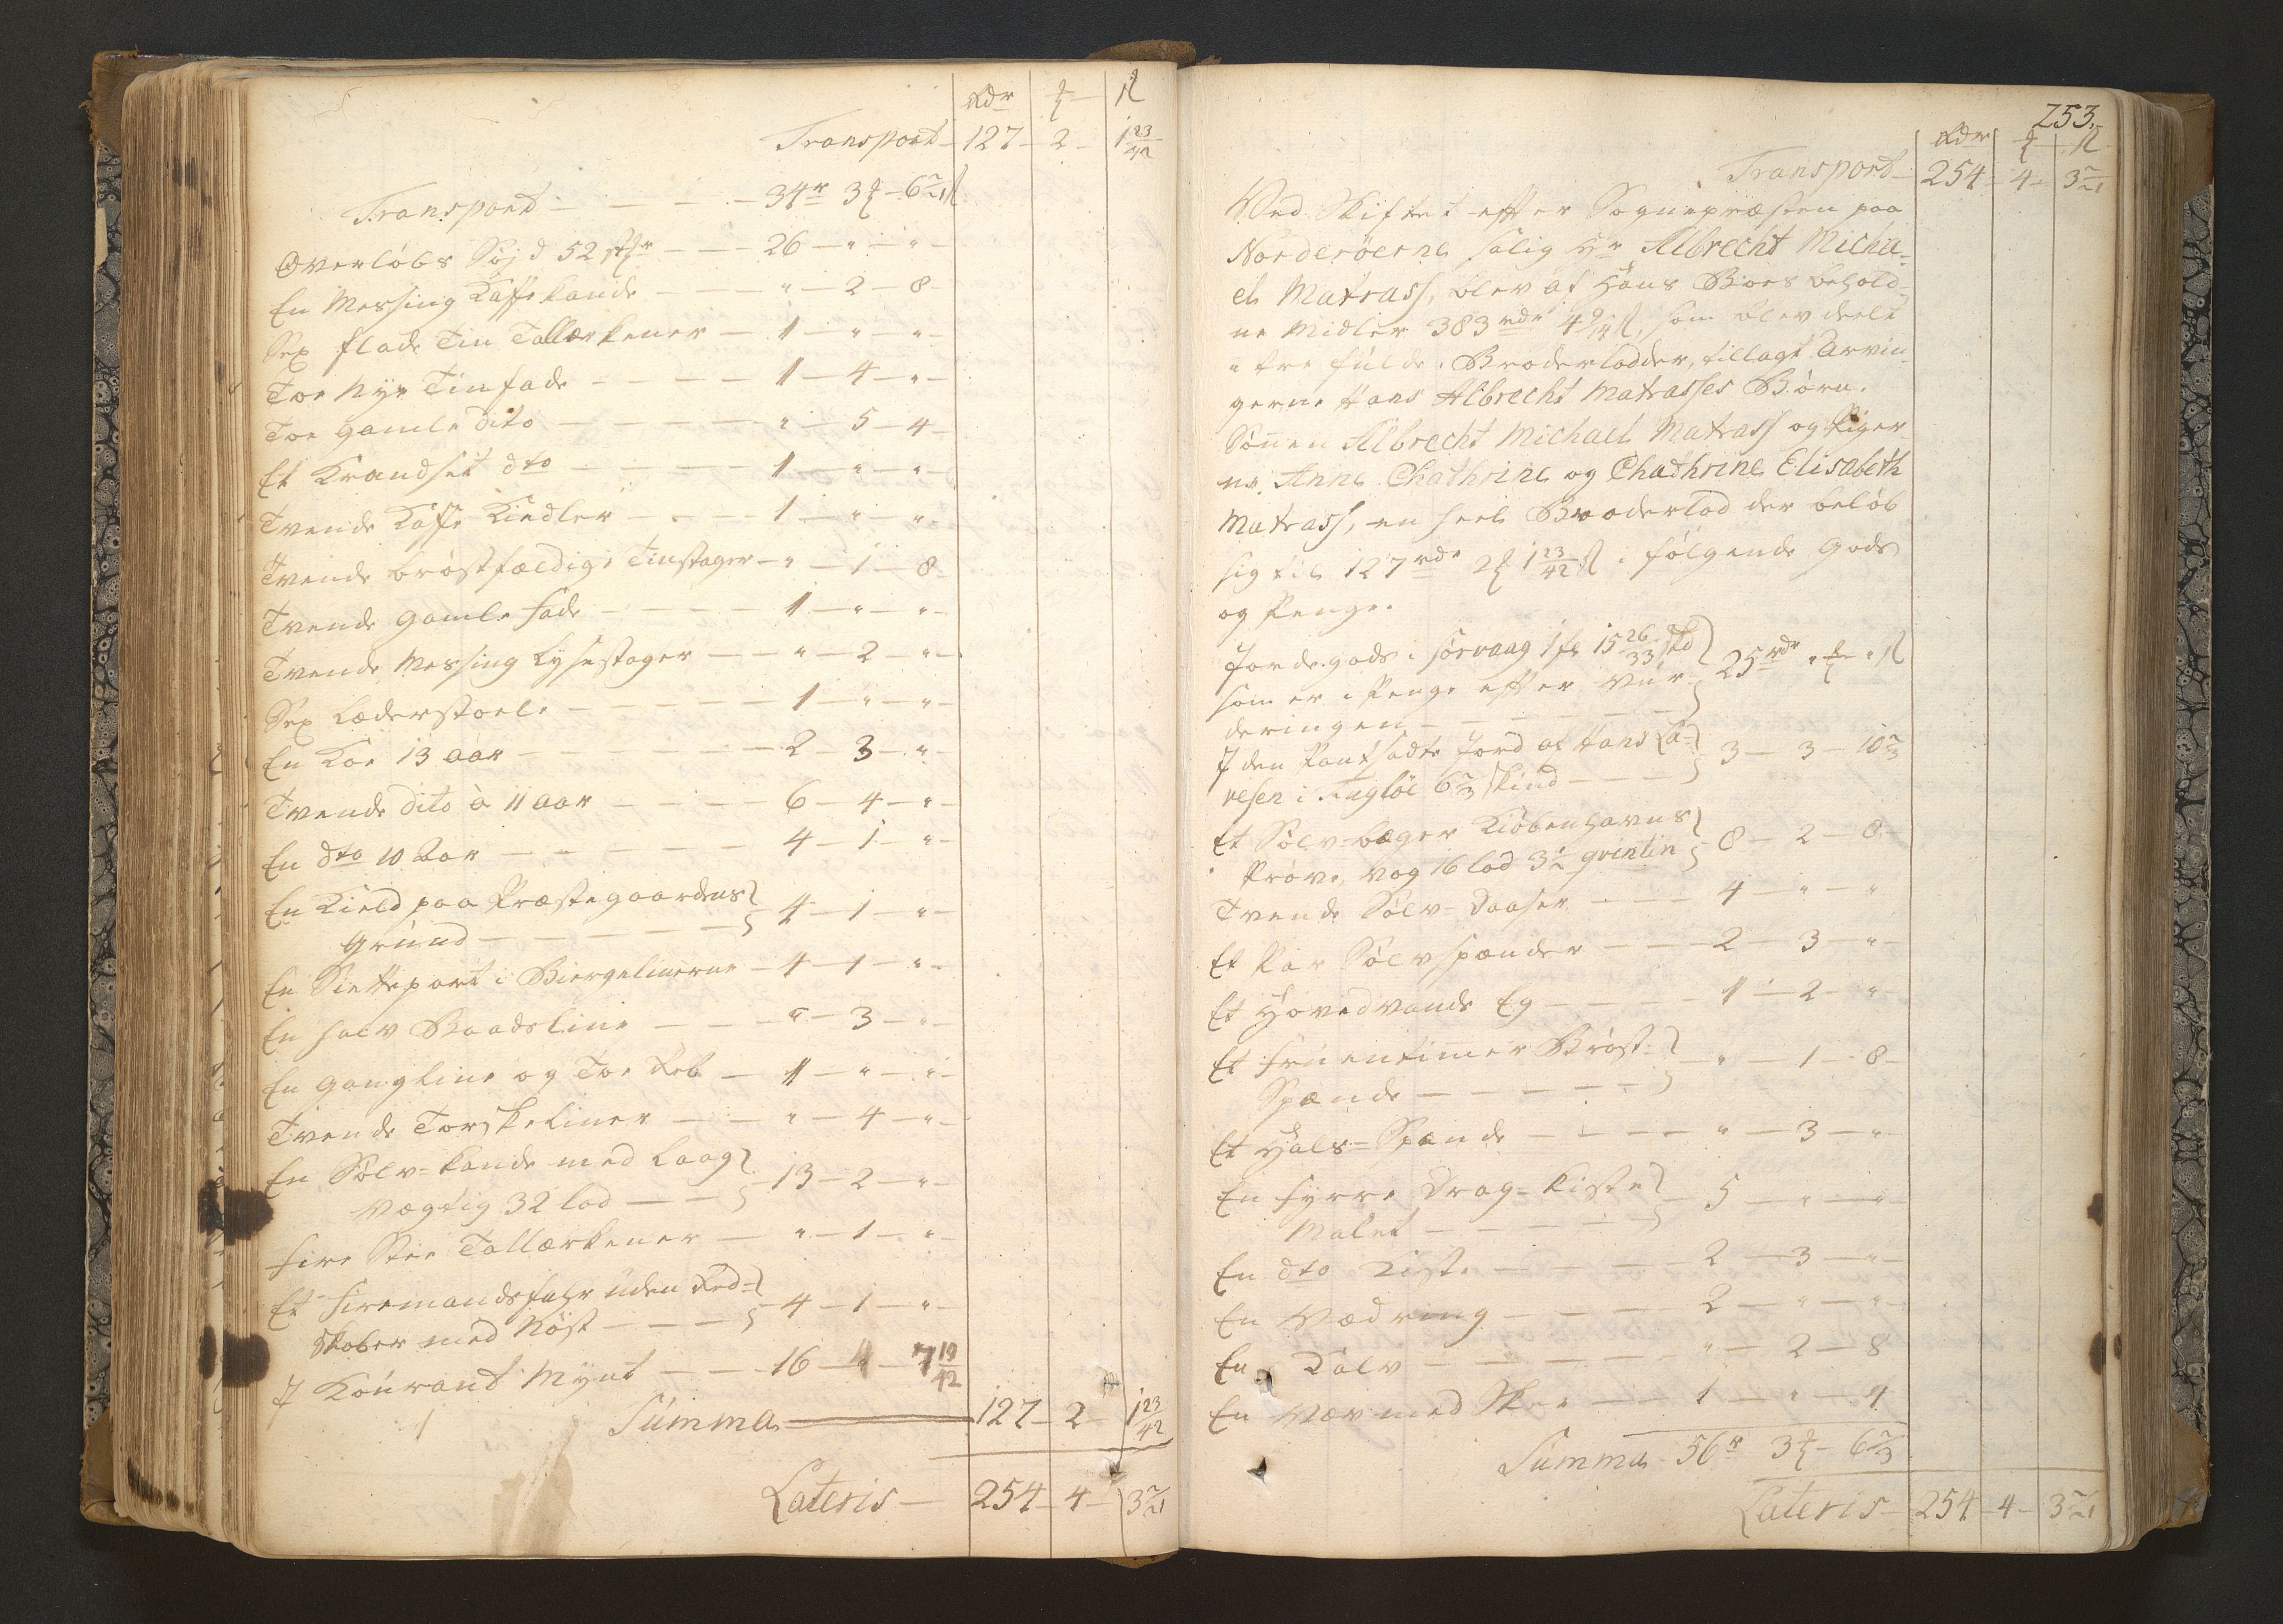 Rdr ℥ ß
Transport 127 2 1 23/42
Transport — — — 34r 3℥ 6 2/21 ß
Overløbs Søjd 52 — — 26 — " — "
En Messing Kaffekande — — — " — 2 — 8
Sex flade Tin Tallerkener — 1 — " — "
Toe Nye Tinfade — — — — 1 — 4 — "
Toe gamle dito — — — — " — 5 — 4
Et Krandset dto — — — — 1 — " — "
Tvende Kaffe Kiedler — — — 1 — " — "
Tvende brøstfældige Tinstager — " — 1 — 8
Tvende gamle fade — — — — 1 — " — "
Tvende Messing Lysestager — — " — 2 — "
Sex Læderstoele — — — — 1 — " — "
En Koe 13 aar — — — — 2 — 3 — "
Tvende dito à 11 aar — — — 6 — 4 — "
En dto 10 Aar — — — — 4 — 1 — "
En Kield paa Præstegaardens
Grund — — — — — 4 — 1 — "
En Siettepart i Biergelinerne — 4 — 1 — "
En halv Baadsline — — — " — 3 — "
En gangline og Toe Reb — 1 — " — "
Tvende Torskeliner — — " — 4 — "
En Sølv-kande med Laag
vægtig 32 lod — — 13 — 2 — "
fire Stee Tallerkener — " — 1 — "
Et firemandsfahr uden Red-
skaber med Nøst — — — 4 — 1 — "
I Kourant Mynt — — 16 — 4 — 7 19/42
Summa 127 2 1 23/42
Lateris — 254 4 3 2/21
253.
Rdr ℥ ß
Transport 254 4 3 2/21
Ved Skiftet efter Sognepræsten paa
Norderøerne salig Hr Albrecht Micha-
el Matrass, blev af Hans Boes behold-
ne Midler 383 rdr 4 9/14 ß, som blev deelt
i tre fulde Broderlodder, tillagt Arvin
gerne Hans Albrecht Matrasses Børn.
Sønnen Albrecht Michael Matrass og Piger
ne Anne Chathrine og Chathrine Elisabeth
Matrass, en heel Broderlod der beløb
sig til 127 rdr 2℥ 1 23/42 ß i følgende Gods
og Penge.
Jordegods i Sørvaag 1 15 26/33 skd
som er i Penge efter Vur-
deringen — — — — — 25 rdr "℥ " ß
I den Pantsadte Jord af Hans La-
vesen i Fugløe 6 2/3 skind — — — 3 — 3 — 10 2/3
Et Sølv-bæger Kiøbenhavns
Prøve, vog 16 lod 3 1/2 qvintin 8 — 2 — 8
Tvende Sølv-Daaser — — — 4 — " — "
Et Par Sølvspænder — — — 2 — 3 — "
Et Hovedvands Eg — — — — 1 — 2 — "
Et fruentimer Brøst-
Spænde — — — — — " — 1 — 8
Et Hals-Spænde — — — — " — 3 — "
En fyrre Drag-kiste
Malet — — — — — 5 — " — "
En dto Kiste — — — — 2 — 3 — "
En Vædring — — — — 2 — " — "
En Kalv — — — — — " — 2 — 8
En Væv med Skee — — 1 — " — 4
Summa 56r 3℥ 6 2/3
Lateris 254 4 3 2/21